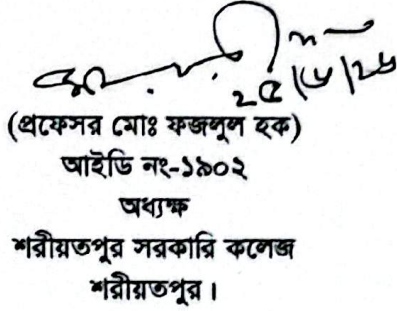 ২৫/৬/২৬
(প্রফেসর মোঃ ফজলুল হক)
আইডি নং-১৯০২
অধ্যক্ষ
শরীয়তপুর সরকারি কলেজ
শরীয়তপুর।